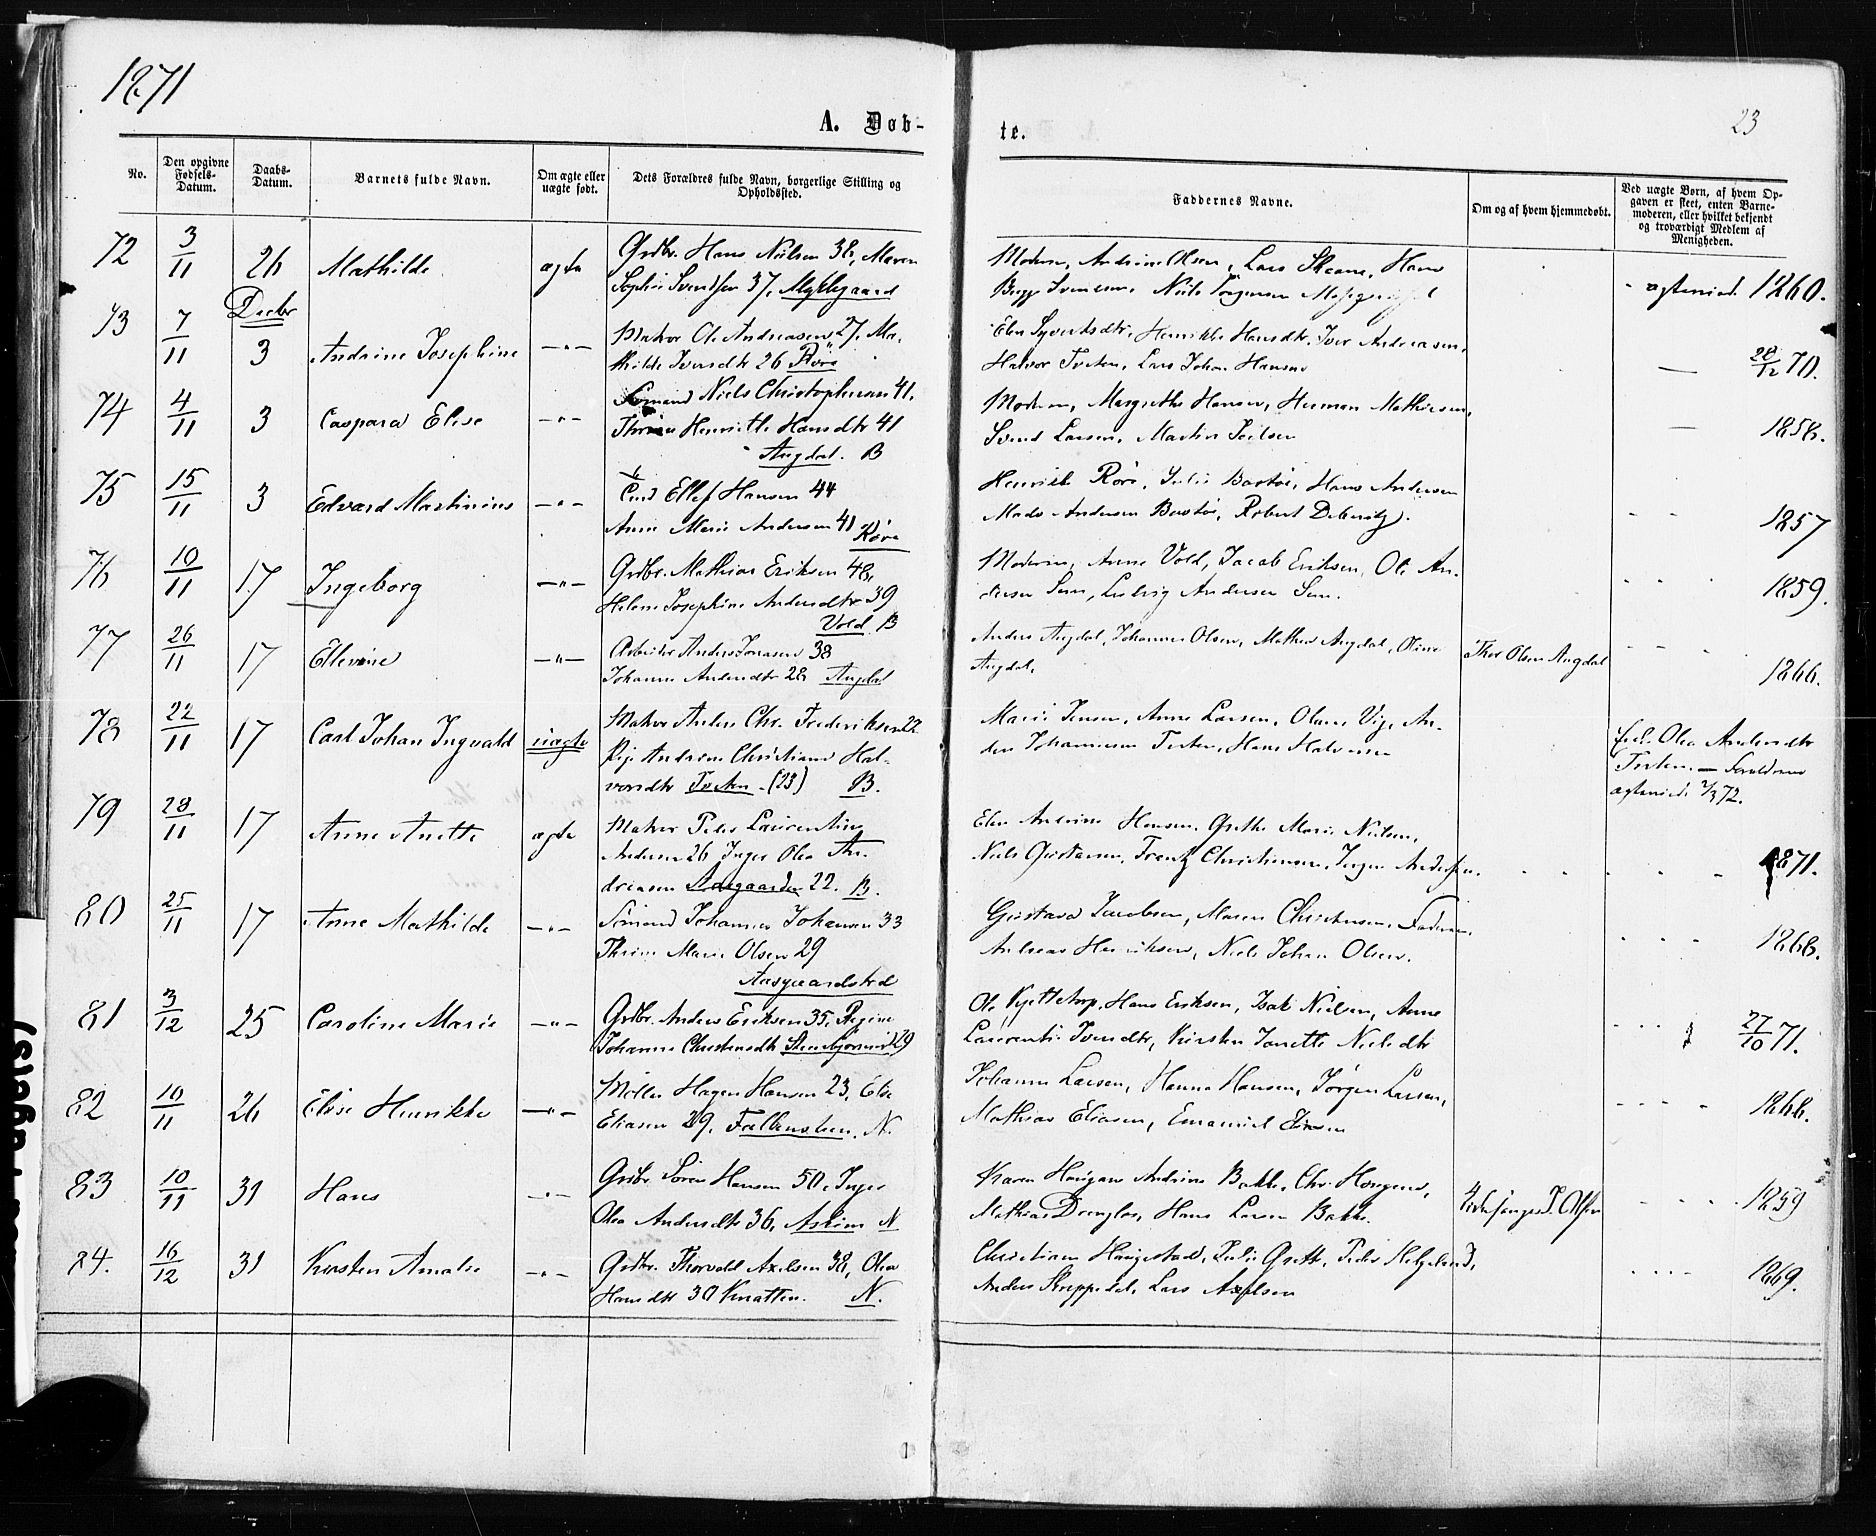 1871
A. Døb-
te.
23
No.
Den opgivne Fødsels-Datum.
Daabs-Datum.
Barnets fulde Navn.
Om ægte eller uægte født.
Dets Forældres fulde Navn, borgerlige Stilling og Opholdssted.
Faddernes Navne.
Om og af hvem hjemmedøbt.
Ved uægte Børn, af hvem Op-
gaven er skeet, enten Barne-
moderen, eller hvilket bekjendt
og troværdigt Medlem af
Menigheden.
72 3/11 26 Mathilde ægte Grdbr. Hans Nielsen 38, Maren
Sophie Svendsen 37, Myklegaard
Moderen, Andrine Olsen, Lars Skeane, Hans
ægteviet 1860.
Decbr
73 7/11 3 Andrine Josephine —„— Matros Ole Andreasen 27, Ma-
thilde Iversdtr 26 Røre
Elen Syvertsdtr, Henrikke Hansdtr, Iver Andreasen,
Halvor Tveten, Lars Johan Hansen
— 28/12 70.
74 4/11 3 Caspara Elise —„— Sømand Niels Christophersen 41,
Thrine Henriette Hansdtr 41
Augdal. B
Moderen, Margrethe Hansen, Herman Mathisen,
Svend Larsen, Martin Seilsen
— 1858.
75 15/11 3 Edvard Martinius —„— Ellef Hansen 44
Anne Marie Andersen 41 Røre
Henrik Røre, Julie Bastøe, Hans Andersen
Mads Andersen Bastøe, Robert Deberitz.
1857
76 10/11 17 Ingeborg —„— Grdbr. Mathias Eriksen 48,
Helene Josephine Andersdtr 39
Vold B
Moderen, Anne Vold, Jacob Eriksen, Ole An-
dersen Sem, Ludvig Andersen Sem.
1859.
77 26/11 17 Ellevine —„— Arbeider Anders Jonasen 38
Johanne Andersdtr 28 Augdal
Anders Augdal, Johannes Olsen, Mathea Augdal, Oline
Augdal.
Thor Olsen Augdal
1866.
78 22/11 17 Carl Johan Ingvald uægte Matros Anders Chr. Frederiksen 22
Pige Andrine Christiane Hal-
vorsdtr Tveten (23) B.
Marie Jensen, Anne Larsen, Olava Vig, An-
ders Johannesen Tveten, Hans Halvorsen
Olea Andersdtr
Tveten. — Forældrene
ægteviet 2/3 72.
79 28/11 17 Anne Anette ægte Matros Peder Laurentius
Andersen 26 Inger Olea An-
dreasen Aasgaarden 22. B.
Elen Andrine Hansen, Grethe Marie Nielsen,
Niels Gustavsen, Frantz Christiansen, Jørgen Andersen.
1871.
80 25/11 17 Anne Mathilde —„— Sømand Johannes Johansen 33
Thrine Marie Olsen 29
Aasgaardstrd
Gustava Jacobsen, Maren Christensen, Faderen,
Andreas Henriksen, Niels Johan Olsen.
1868.
81 3/12 25 Caroline Marie —„— Grdbr. Anders Eriksen 35, Regine
Johanne Christensdtr 29
Ole Gjettetorp, Hans Eriksen, Isak Nielsen, Anne
Laurentie Iversdtr, Kirsten Janette Nielsdtr
27/10 71.
82 10/11 26 Elise Henrikke —„— Møller Hagen Hansen 23, Else
Eliasen 29, Falkensteen. N.
Johanne Larsen, Hanna Hansen, Jørgen Larsen,
Mathias Eliasen, Emanuel Jensen
1868.
83 10/11 31 Hans —„— Grdbr Søren Hansen 50, Inger
Olea Andersdtr 36, Askim N
Karen Haugan, Andrine Bakke, Chr. Haugene,
Mathias Drenglas, Hans Larsen Bakke.
Kirkesanger J. Olsen
1859
84. 16/12 31 Kirsten Amalie —„— Grdbr. Thorvald Axelsen 38, Olea
Hansdtr 30 Knatten. N.
Christiane Haugestad, Julie Grette, Peder Helgeland,
Anders Skreppedal, Lars Axelsen
1869.